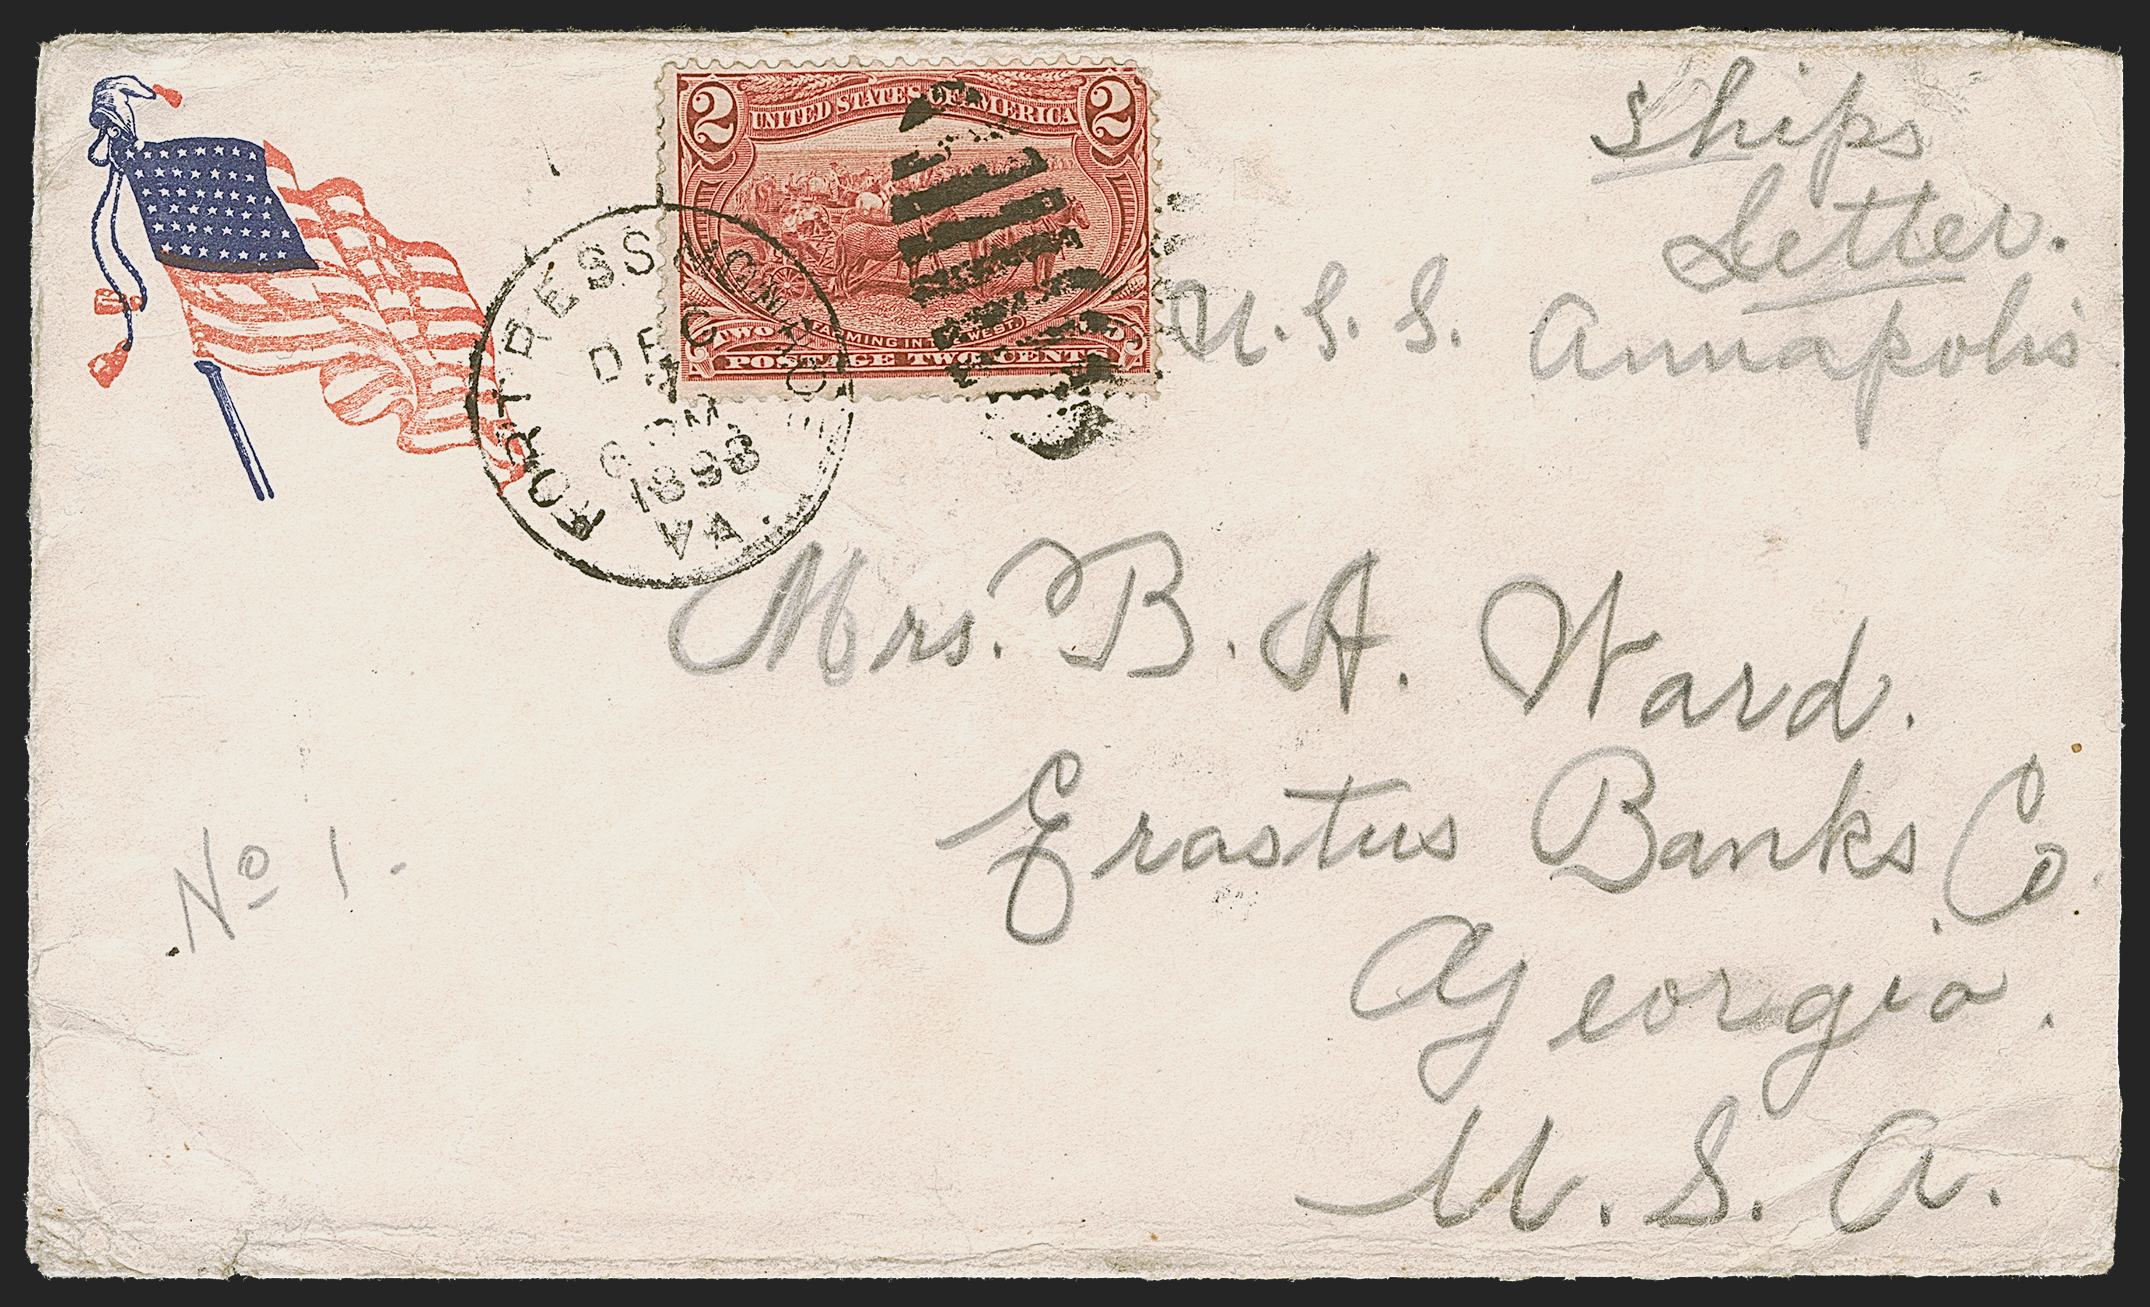 Ships
Letter.
U.S.S. Annapolis
2 UNITED STATES OF AMERICA 2
FARMING IN THE WEST.
POSTAGE TWO CENTS
FORTRESS MONROE
DEC
1898
VA.
Mrs. B. A. Ward.
Erastus Banks Co.
Georgia.
U. S. A.
No 1.